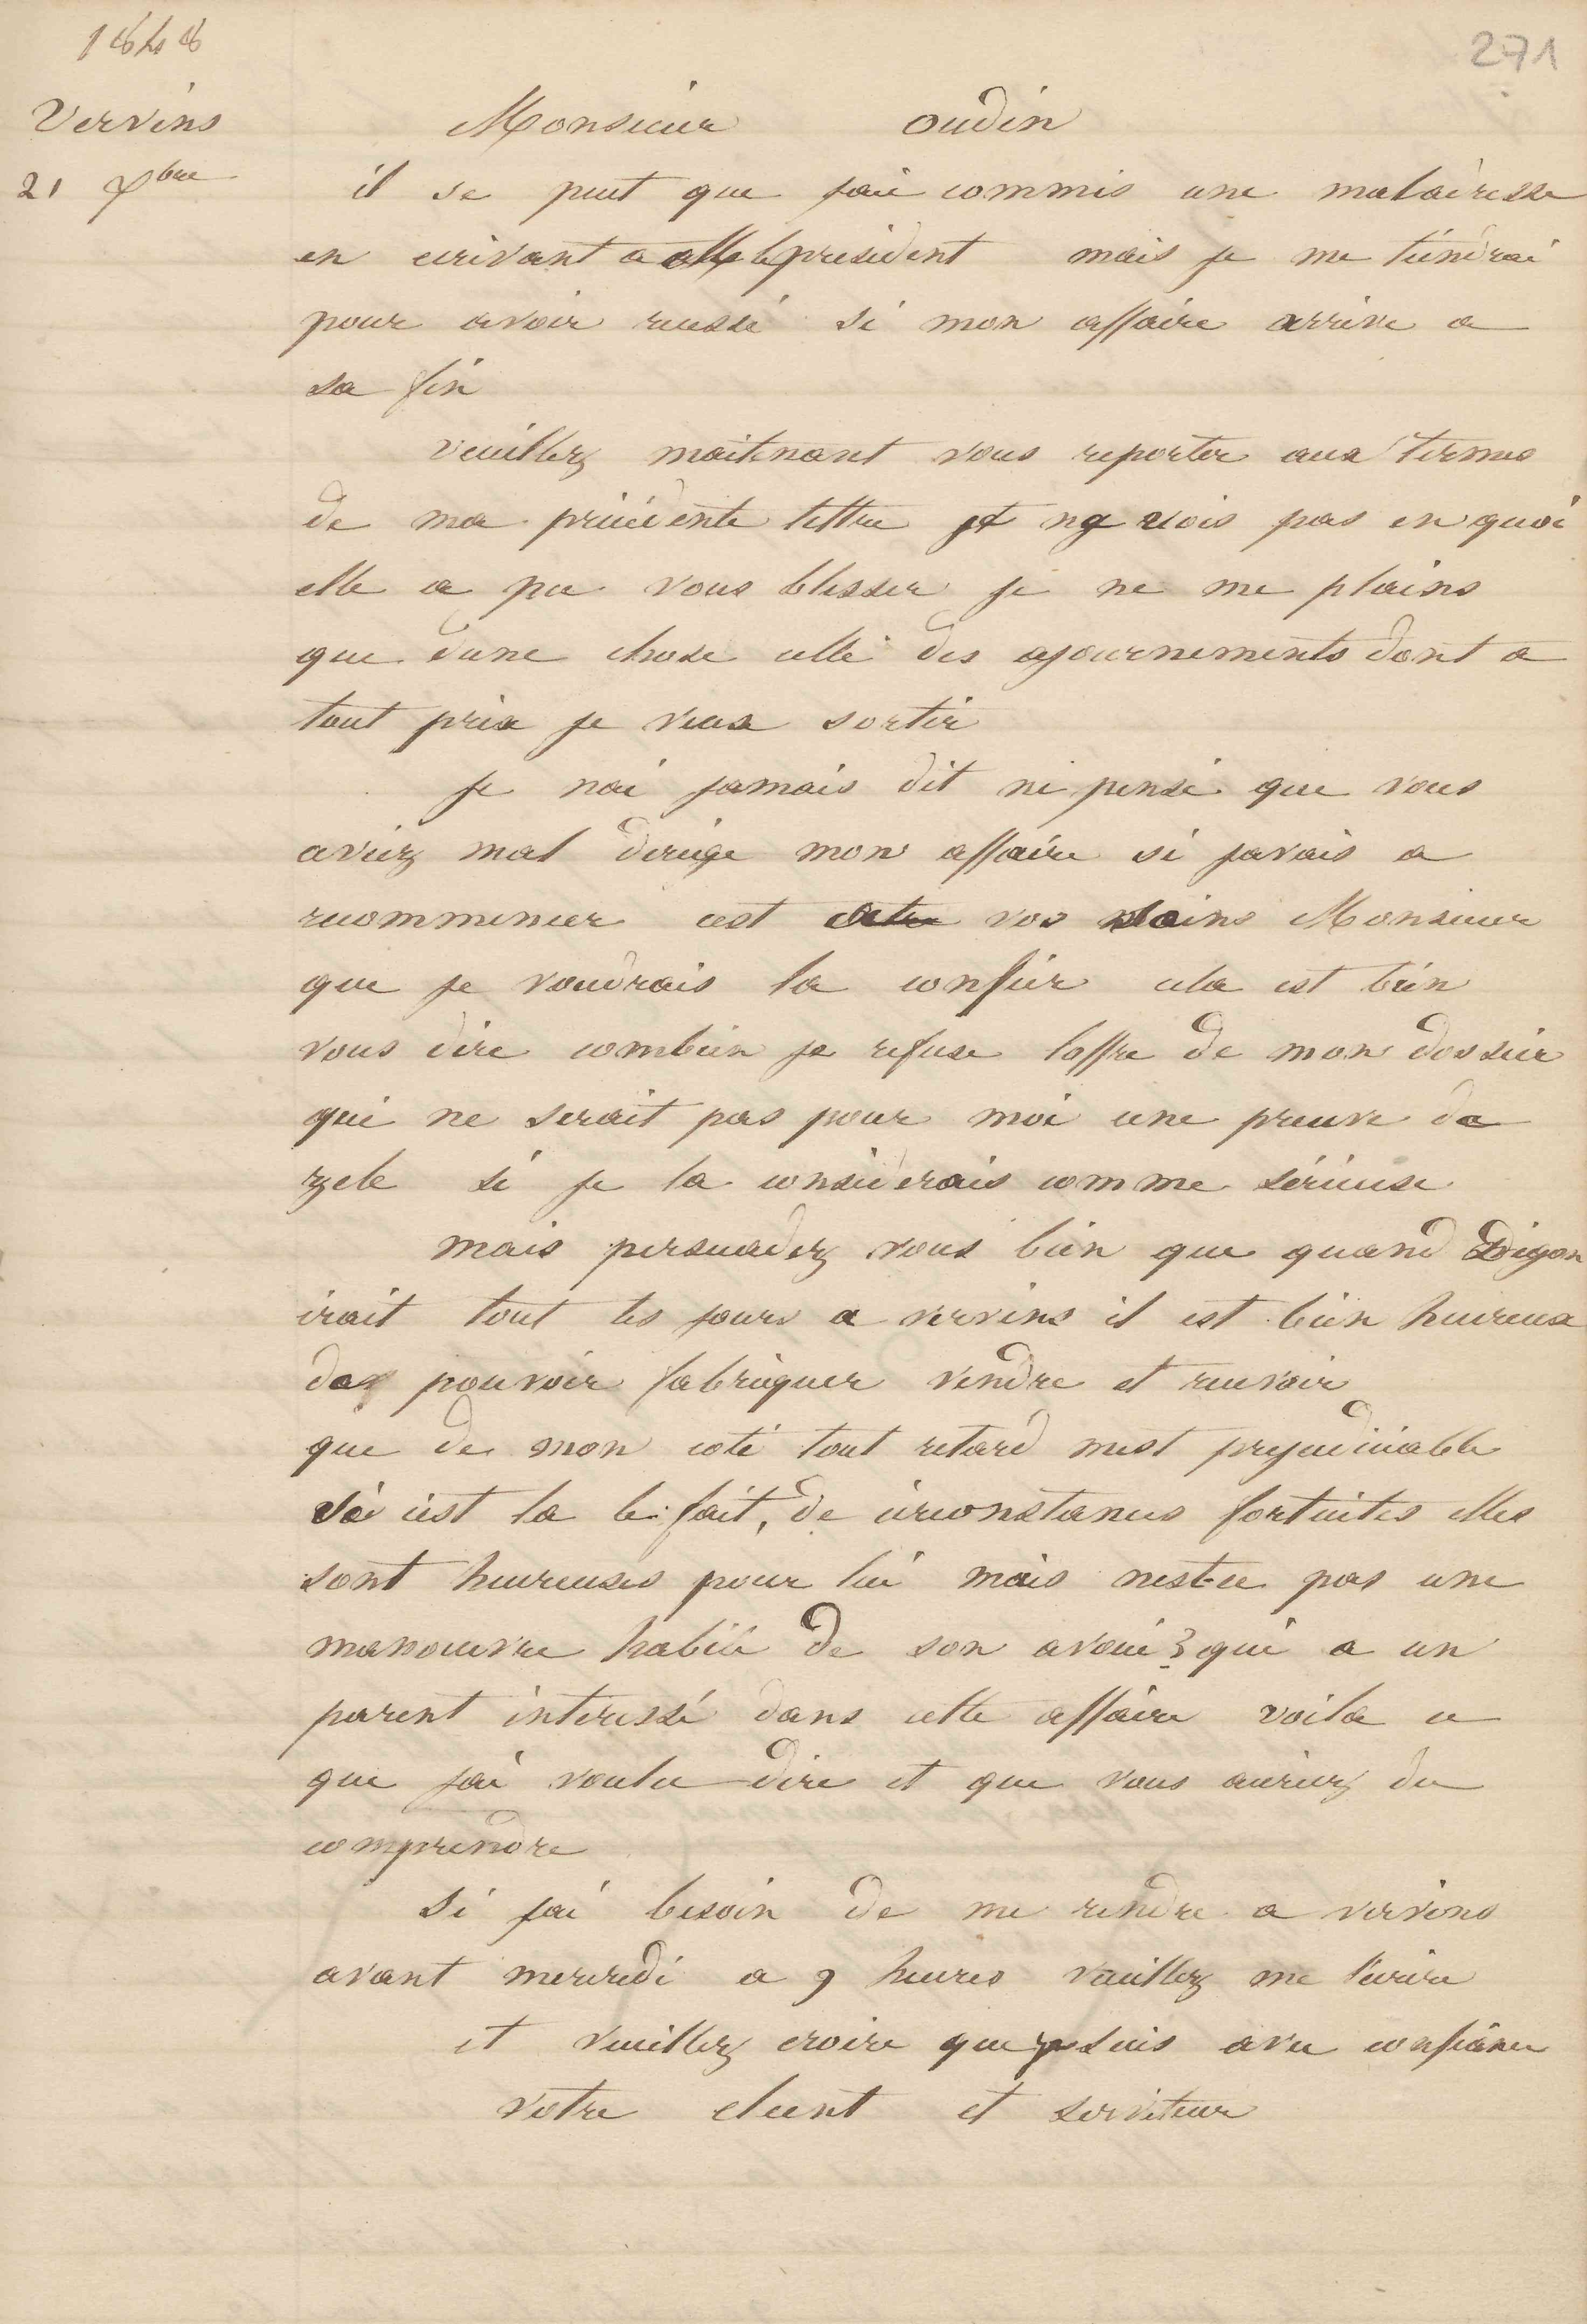 1848
271
Vervins
Monsieur oudin
21 Xbre
il se peut que jaie commis une maladresse
en ecrivant a Mr le president mais je me tiendrai
pour avoir reussi si mon affaire arrive a
sa fin
veuillez maitenant vous reporter aux termes
de ma précédente lettre je ne vois pas en quoi
elle a pu vous blesser je ne me plains
que dune chose celle des ajournements dont a
tout prix je veux sortir
je nai jamais dit ni pensé que vous
aviez mal dirigé mon affaire si javais a
recommencer cest vos soins Monsieur
que je voudrais la confier cela est bien
vous dire combien je refuse loffre de mon dossier
qui ne serait pas pour moi une preuve de
zele si je la considerais comme sérieuse
mais persuadez vous bien que quand
irait tout les jours a vervins il est bien heureux
de pouvoir fabriquer vendre et recevoir
que de mon coté tout retard mest prejudiciable
si cest la le fait, de circonstances fortuites elles
sont heureuses pour lui mais nest-ce pas une
manoeuvre habile de son avoué? qui a un
parent interessé dans cette affaire voila ce
que jai voulu dire et que vous auriez du
comprendre
si jai besoin de me rendre a vervins
avant mercredi a 9 heures veuillez me lecrire
et veuillez croire que je suis avec confiance
votre client et serviteur